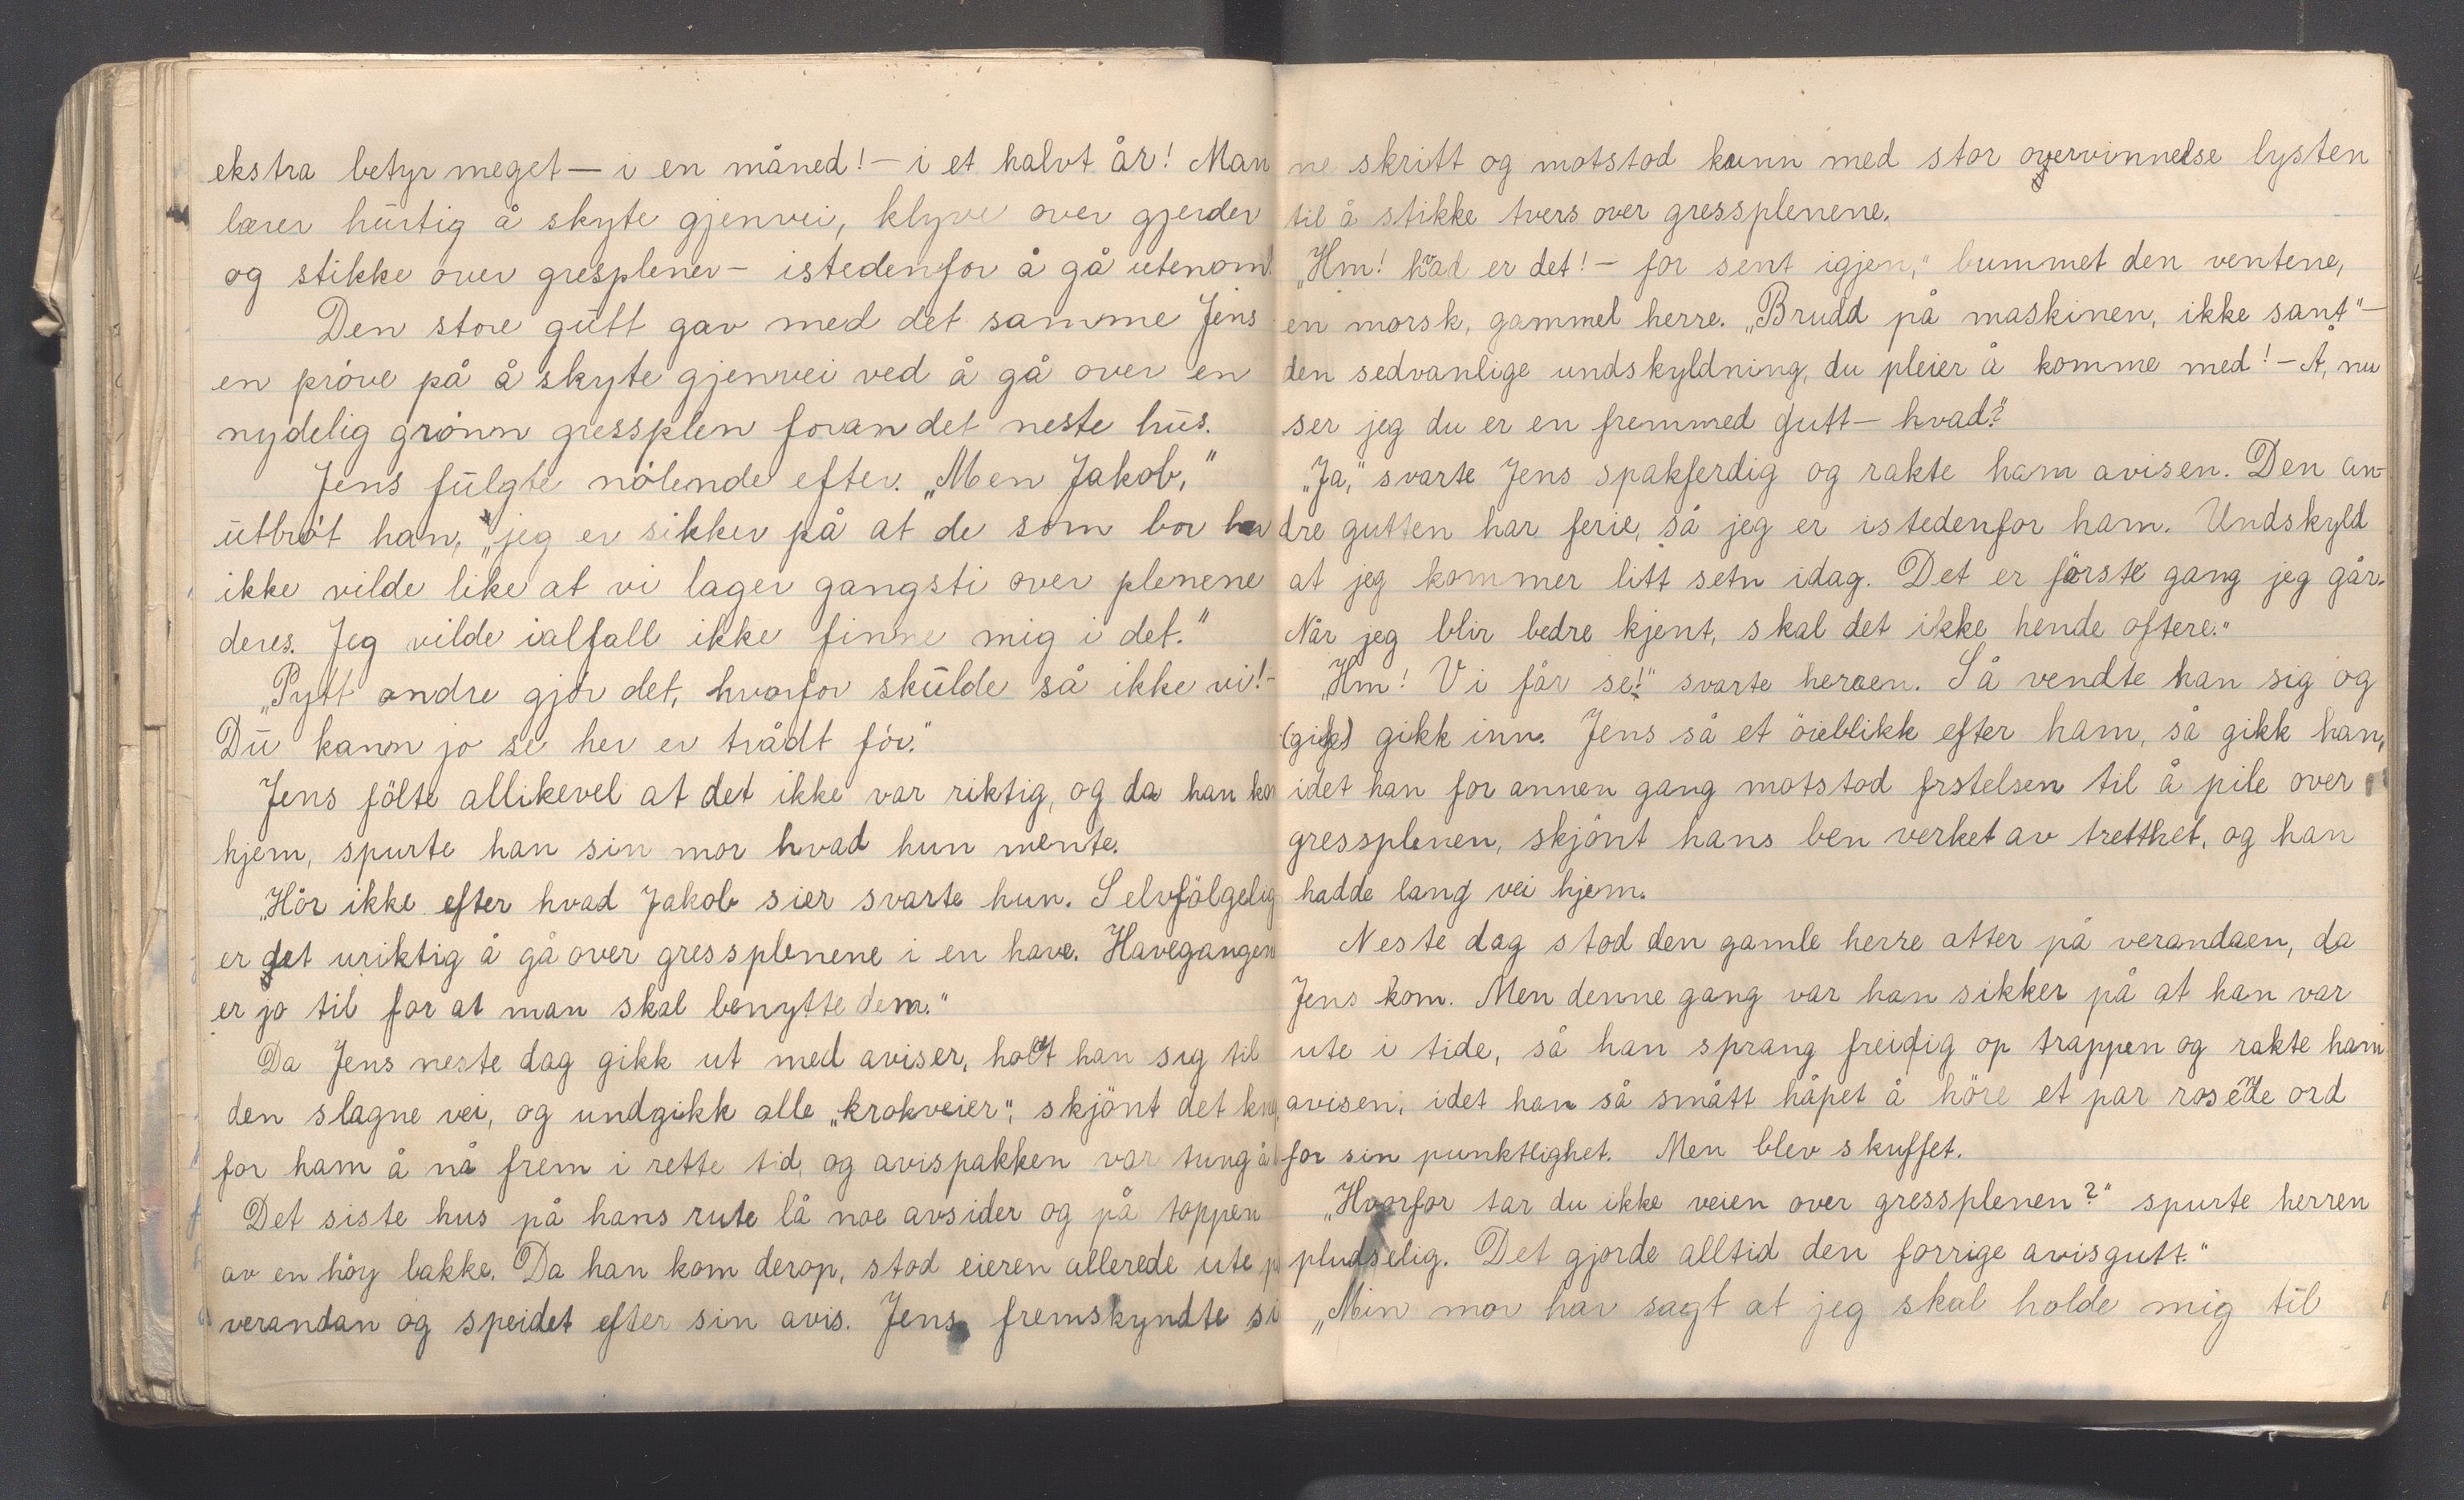 ekstra betyr meget — i en måned! — i et halvt år! Man
lærer hurtig å skyte gjenvei, klyve over gjerder
og stikke over gresplener — istedenfor å gå utenom."
Den store gutt gav med det samme Jens
en pröve på å skyte gjenvei ved å gå over en
nydelig grönn gressplen foran det neste hus.
Jens fulgte nölende efter. „Men Jakob,"
utbröt han, „jeg er sikker på at de som bor her
ikke vilde like at vi lager gangsti over plenene
deres. Jeg vilde ialfall ikke finne mig i det."
„Pytt andre gjör det, hvorfor skulde så ikke vi! —
Du kann jo se her er trådt för."
Jens fölte allikevel at det ikke var riktig, og da han kom
hjem, spurte han sin mor hvad hun mente.
„Hör ikke efter hvad Jakob sier svarte hun. Selvfölgelig
er det uriktig å gå over gressplenene i en have. Havegangen
er jo til for at man skal benytte dem."
Da Jens neste dag gikk ut med aviser, holdt han sig til
den slagne vei, og undgikk alle „krokveier", skjönt det
for ham å nå frem i rette tid, og avispakken var tung å
Det siste hus på hans rute lå noe avsides og på toppen
av en höy bakke. Da han kom derop, stod eieren allerede ute på
verandan og speidet efter sin avis. Jens fremskyndte si
ne skritt og motstod kunn med stor overvinnelse lysten
til å stikke tvers over gressplenene.
„Hm! hvad er det! — for sent igjen," bummet den ventene,
en morsk, gammel herre. „Brudd på maskinen, ikke sant" —
den sedvanlige undskyldning, du pleier å komme med! — Å, nu
ser jeg du er en fremmed gutt — hvad?"
„Ja," svarte Jens spakferdig og rakte ham avisen. Den an-
dre gutten har ferie, så jeg er istedenfor ham. Undskyld
at jeg kommer litt setn idag. Det er förste gang jeg går.
Når jeg blir bedre kjent, skal det ikke hende oftere."
„Hm! Vi får se!" svarte herren. Så vendte han sig og
(gikk) gikk inn. Jens så et öieblikk efter ham, så gikk han,
idet han for annen gang motstod frstelsen til å pile over
gressplenen, skjönt hans ben verket av tretthet, og han
hadde lang vei hjem.
Neste dag stod den gamle herre atter på verandaen, da
Jens kom. Men denne gang var han sikker på at han var
ute i tide, så han sprang freidig op trappen og rakte ham
avisen, idet han så smått håpet å höre et par rosende ord
for sin punktlighet. Men blev skuffet.
„Hvorfor tar du ikke veien over gressplenen?" spurte herren
pludselig. Det gjorde alltid den forrige avisgutt."
„Min mor har sagt at jeg skal holde mig til